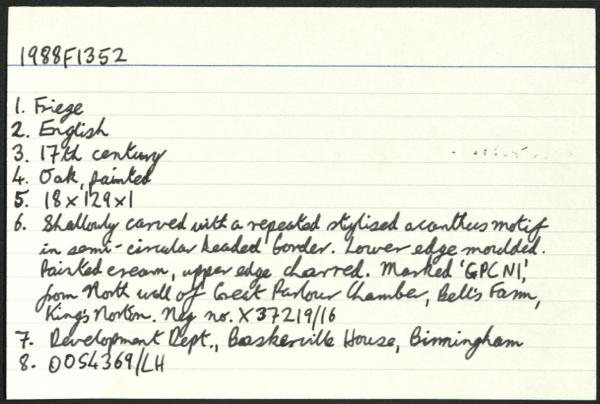 1988F1352
1. Friege
2. English
3. 17th century
4. Oak, painted
5. 18 x 129 x 1
6. Shallowly carved with a repeated stylised acanthus motif
in semi-circular headed border. Lower edge moulded.
Painted cream, upper edge charred. Marked 'GPCN1',
from North wall of Great Parlour Chamber, Bell's Farm,
King's Norton. Neg no. X37219/16
7. Development Dept., Baskerville House, Birmingham
8. OOS4369/LH